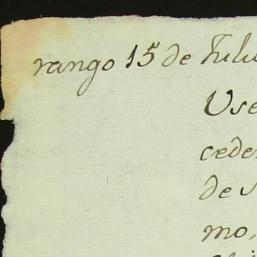 rango 15 de Julu
Use
cede
de s
mo,